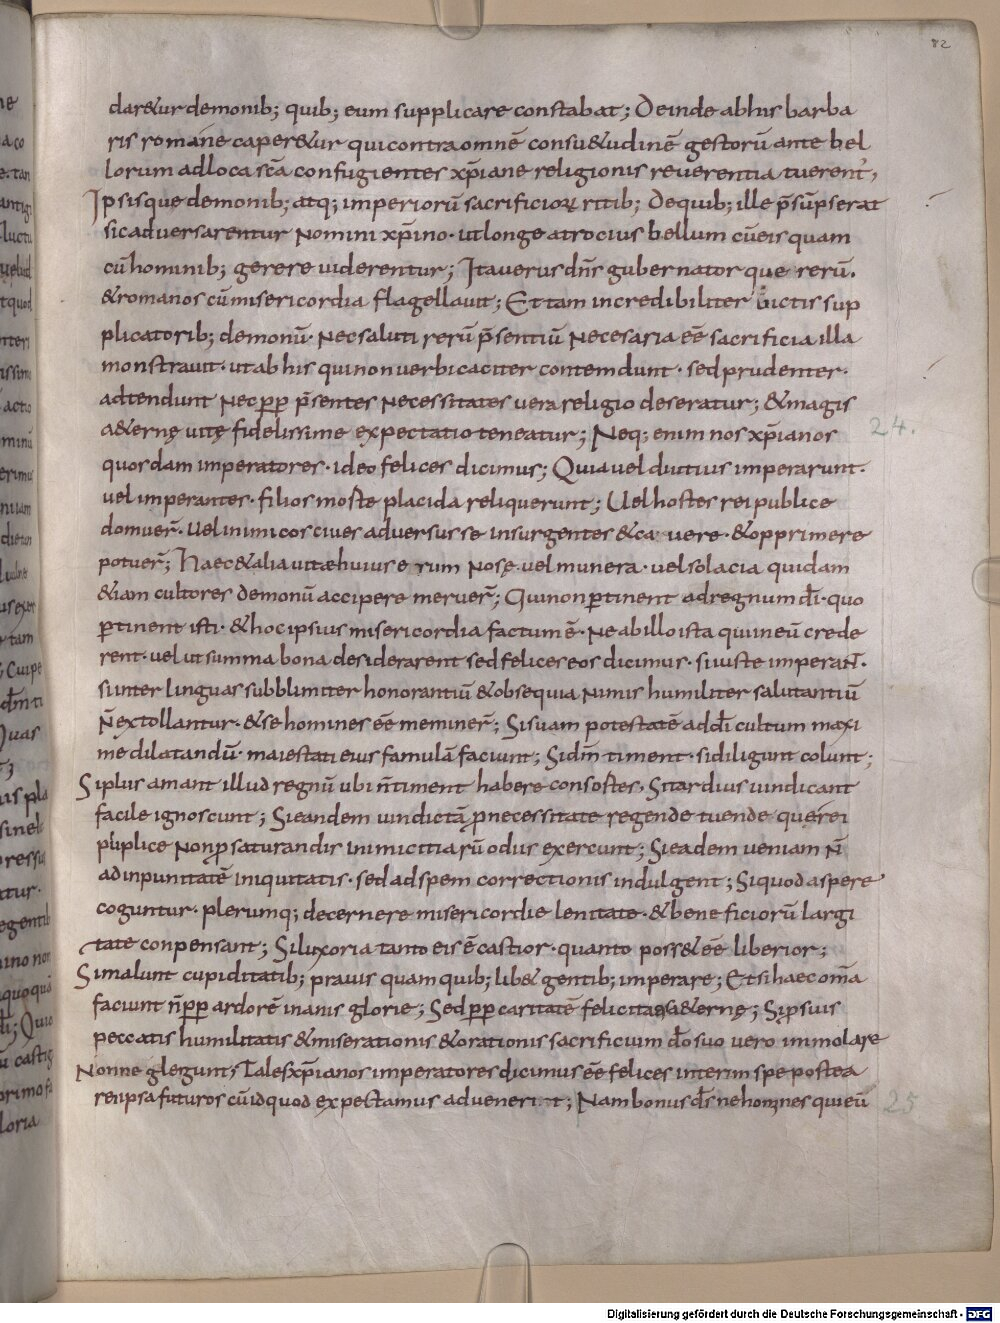 82
dar&ur demonib; quib; eum supplicare constabat; Deinde abhis barba
ris romane caper&ur qui contra omnē consu&udinē gestorū ante bel
lorum adloca sc̄a confugientes xp̄iane religionis reverentia tuerent᷑,
Ipsisque demonib; atq; imperiorū sacrificioꝝ ritib; Dequib; ille p̄sūpserat
sic adversarentur Nomini xp̄ino · utlonge atrocius bellum cū eis quam
cū hominib; gerere viderentur; Ita verus dn̄s gubernator que rerū.
&romanos cū misericordia flagellavit; Et tam incredibiliter victis sup
plicatorib; demonū · Nec saluti rerū p̄sentiū Necesaria eē sacrificia illa
monstravit · ut ab his qui non verbicaciter contemdunt · sed prudenter ·
adtendunt Nec p̱p̱ p̄sentes Necessitates vera religio deseratur; &magis
a&ernę vitę fidelissime expectatio teneatur; Neq; enim nos xp̄ianos
24.
quosdam imperatores · ideo felices dicimus; Quia vel diutius imperarunt ·
vel imperantes · filios moste placida reliquerunt; Vel hostes rei publice
domuer̄ · Vel inimicos cives adversus se insurgentes &ca vere · &opprimere
potuer̄; Haec &alia vitae huius e rum Nosę · vel munera · vel solacia quidam
&iam cultores demonū accipere meruer̄; Qui non ꝑtinent ad regnum dī · quo
ꝑtinent isti · &hoc ipsius misericordia factum ē · Ne ab illo ista qui in eū crede
rent · vel ut summa bona desiderarent sed felices eos dicimus · si iuste imperaN̄ ·
si inter linguas subblimiter honorantiū &obsequia Nimis humiliter salutantiū
N̄ extollantur · &se homines eē meminer̄; Si suam potestatē ad dī cultum maxi
me dilatandū · maiestati eius famulā faciunt; Si dm̄ timent · si diligunt colunt;
Si plus amant illud regnū ubi n̄ timent habere consostes, Si tardius vindicant
facile ignoscunt; Si eandem vindictā ꝓnecessitate regende tuende querei
puplice Non ꝓ saturandis inimicitiarū odiis exercunt; Si eadem veniam N̄
ad inpunitatē iniquitatis · sed ad spem correctionis indulgent; Si quod aspere
coguntur · plerumq; decernere misericordie lenitate · &beneficiorū largi
tate conpensant; Si luxoria tanto eis ē castior · quanto poss& eē liberior;
Si malunt cupiditatib; pravis quam quib; lib& gentib; imperare; Et si haec om̄a
faciunt n̄ p̱p̱ ardorē inanis glorie; Sed p̱p̱ caritatē felicitatis a&ernę; Si p suis
peccatis humilitatis &miserationis &orationis sacrificium dō suo vero immolare
Non neglegunt; Tales xp̄ianos imperatores dicimus eē felices interim spe postea
re ipsa futuros cū id quod expectamus advenerit; Nam bonus ds̄ ne homines qui eū
25
Digitalisierung gefördert durch die Deutsche Forschungsgemeinschaft - DFG